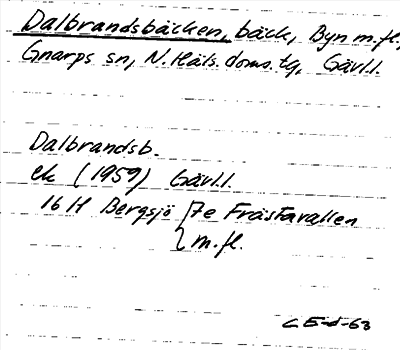 Dalbrandsbäcken, bäck, Byn m.fl.,
Gnarps sn, N. Häls. doms. tg, Gävl.l.
Dalbrandsb.
ek (1959) Gävl.l.
16 H Bergsjö 7e Frästavallen
m.fl.